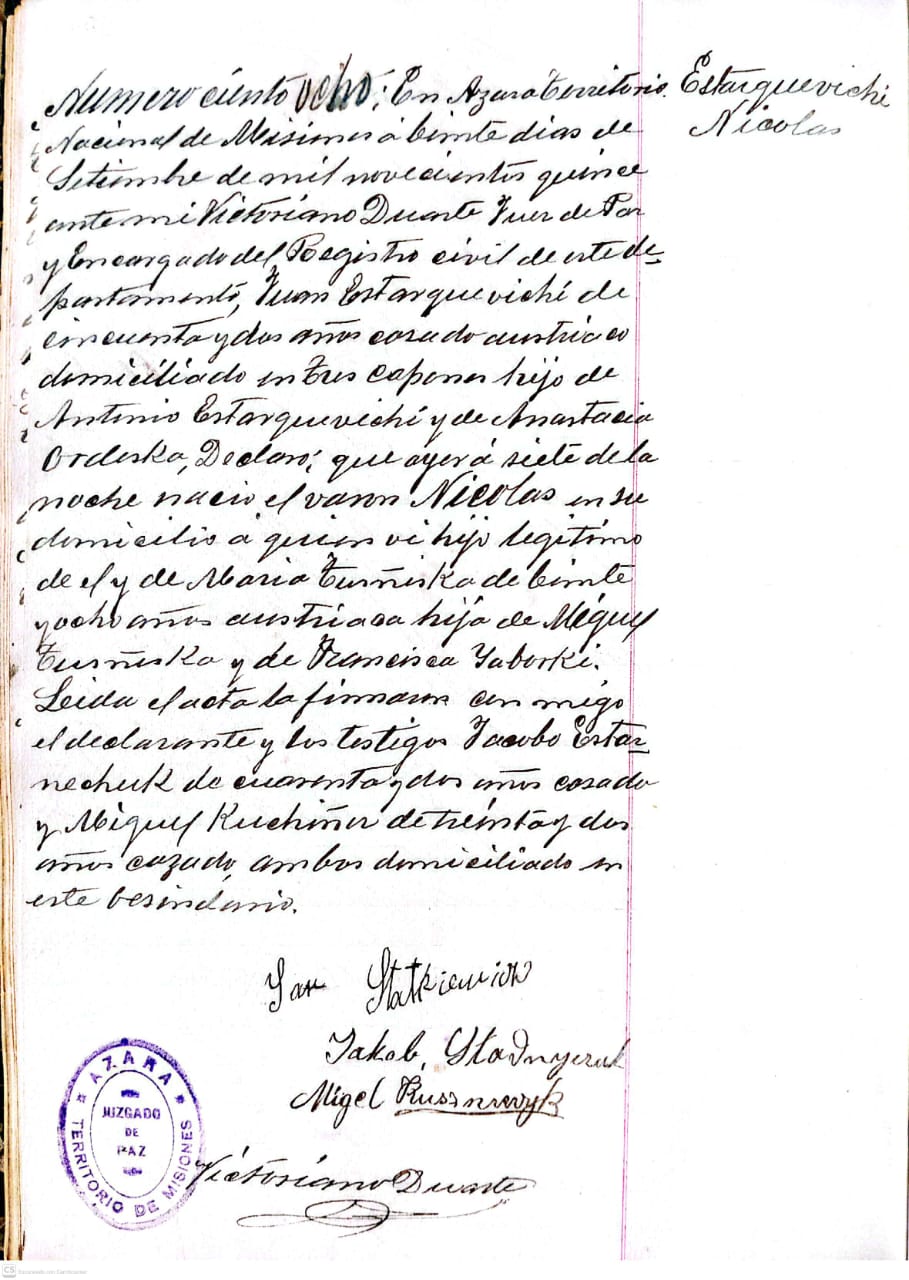 Numero ciento ocho; En Azará territorio
Nacional de Misiones á beinte dias de
Setiembre de mil novecientos quince
ante mi Victoriano Duarte Juez de Paz
y Encargado del Registro civil de este de-
partamento, Juan Estarquevichi de
cincuenta y dos años casado austriaco
domiciliado en tres capones hijo de
Antonio Estarquevichi y de Anastacia
Ordeska, Declaró; que ayer á siete de la
noche nacio el varon Nicolas en su
domicilio á quien vi hijo legitimo
de el y de Maria Turñiska de beinte
y ocho años austriaca hija de Miguel
Turñiska y de Francisca Yaborki.
Leida el acta la firmaron con migo
el declarante y los testigos Jacobo Estar-
nechuk de cuarenta y dos años casado
y Miguel Kuchiñer de treinta y dos
años cazado, ambos domiciliado en
este besindario.
Estarquevichi
Nicolas
Jan Statkiewich
Jakob, Stadnyczuk
Migel
Victoriano Duarte
AZARA
JUZGADO
DE
PAZ
TERRITORIO DE MISIONES
CS Escaneado con CamScanner